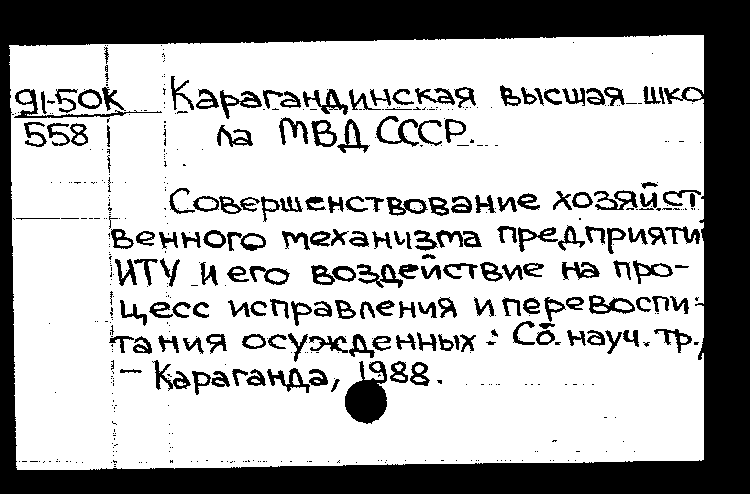 91-50К Карагандинская высшая шко
558 ла МВД СССР.
Совершенствование хозяйст-
венного механизма предприяти
ИТУ и его воздействие на про-
цесс исправления и перевоспи-
тания осужденных : Сб. науч. тр./
– Караганда, 1988.